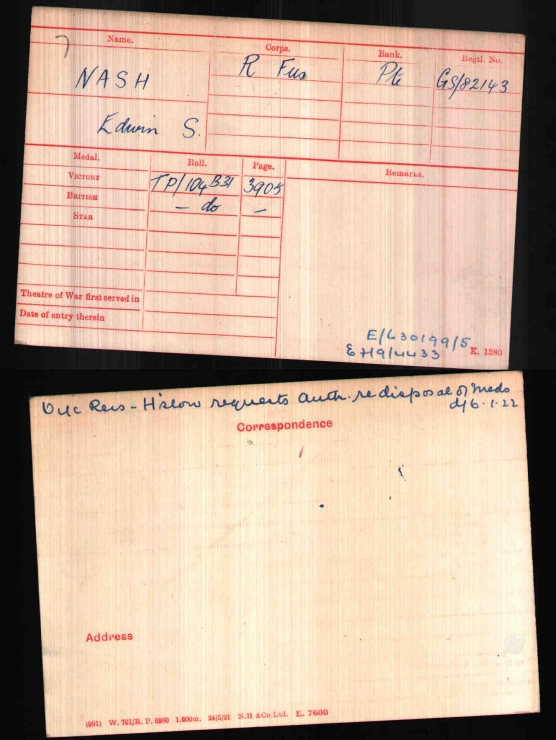 Name. Corps. Rank. Regtl. No.
NASH R Fus Pte GS/82143
Edwin S.
Medal. Roll. Page. Remarks.
VICTORY TP/104 B31 3905
BRITISH — do —
STAR
Theatre of War first served in
Date of entry therein
E/L30199/5
E H9/4433 K. 1380
O i/c Recs - H'slow requests auth. re disposal of Meds
d/6.1.22
Correspondence
Address
(991) W. 701/R. P. 6980 1,000m. 24/5/21 N.H & Co. Ltd. E. 7600